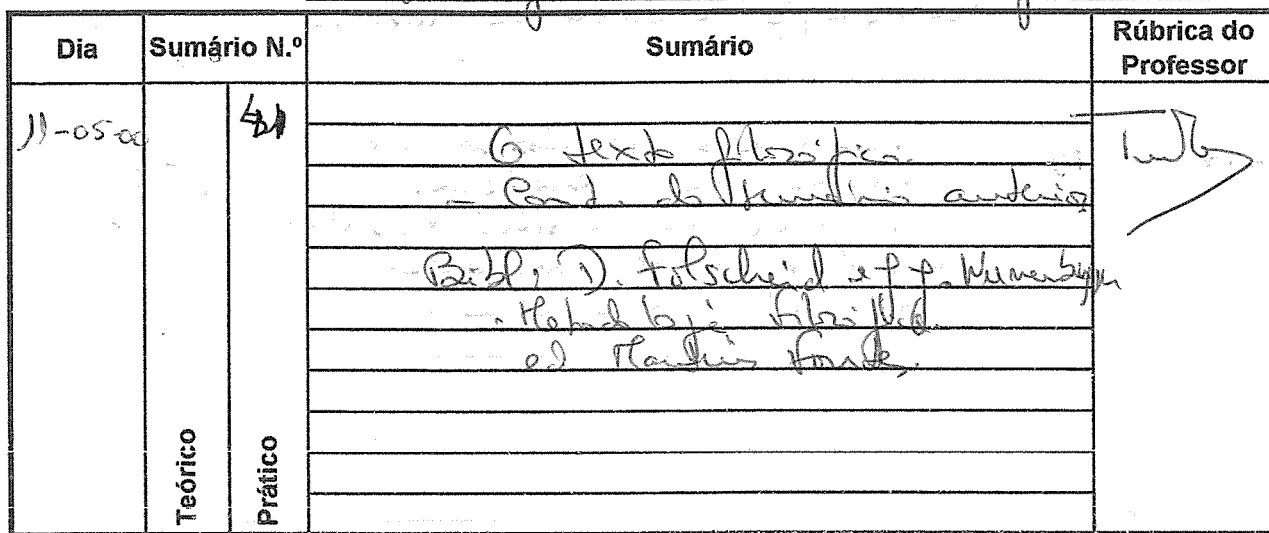 Dia Sumário N.º Sumário Rúbrica do Professor
11-05-00
O texto filosófico
- Cont. do sumário anterior
Bibl; D. Folscheid e J.J. Wunenburger
- Metodologia Filosófica
ed Martins Fontes.
Teórico
Prático